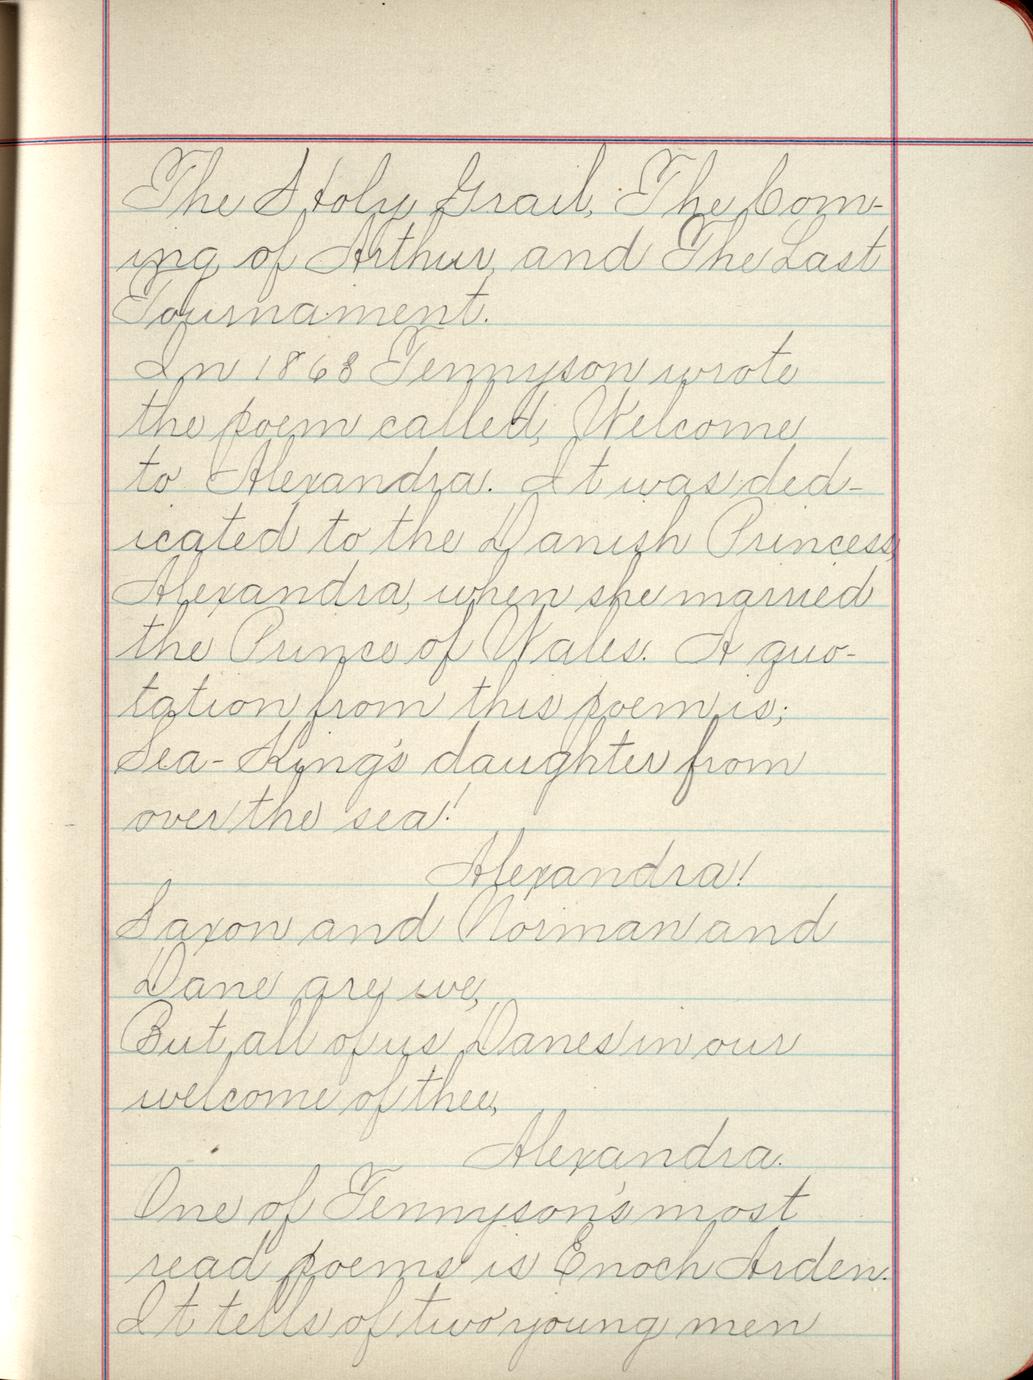 The Holy Grail, The Com-
ing of Arthur, and The Last
Tournament.
In 1868 Tennyson wrote
the poem called, Welcome
to Alexandra. It was ded-
icated to the Danish Princess,
Alexandra, when she married
the Prince of Wales. A quo-
tation from this poem is;
Sea-King's daughter from
over the sea!
Alexandra!
Saxon and Norman and
Dane are we,
But all of us Danes in our
welcome of thee,
Alexandra.
One of Tennyson's most
read poems is Enoch Arden.
It tells of two young men